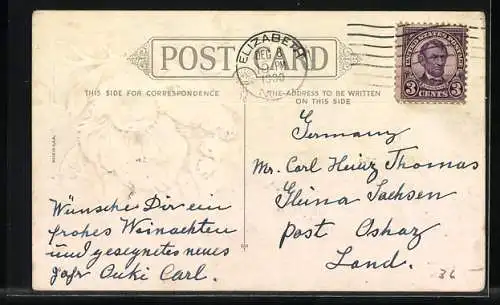 POST CARD
ELIZABETH
DEC 8
9 PM
1930
N.J.
UNITED STATES POSTAGE
3 CENTS 3
THIS SIDE FOR CORRESPONDENCE
THE ADDRESS TO BE WRITTEN
ON THIS SIDE
Wünsche Dir ein
frohes Weinachten
und gesegnetes neues
Jahr Onki Carl.
Germany
Mr. Carl Heinz Thomas
Gleina Sachsen
Post Oshaz
Land.
36